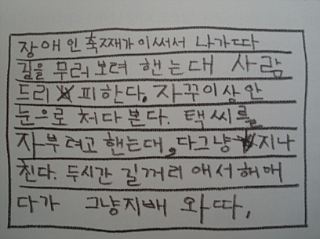 장애인 축째가이써서 나가따
길을 무러보려 핸는대 사람
드리 피한다. 자꾸이상안
눈으로 처다본다. 택씨를
자부려고핸는대, 다그냥 지나
친다. 두시간 길꺼리 애서해매
다가 그냥지배 와따.